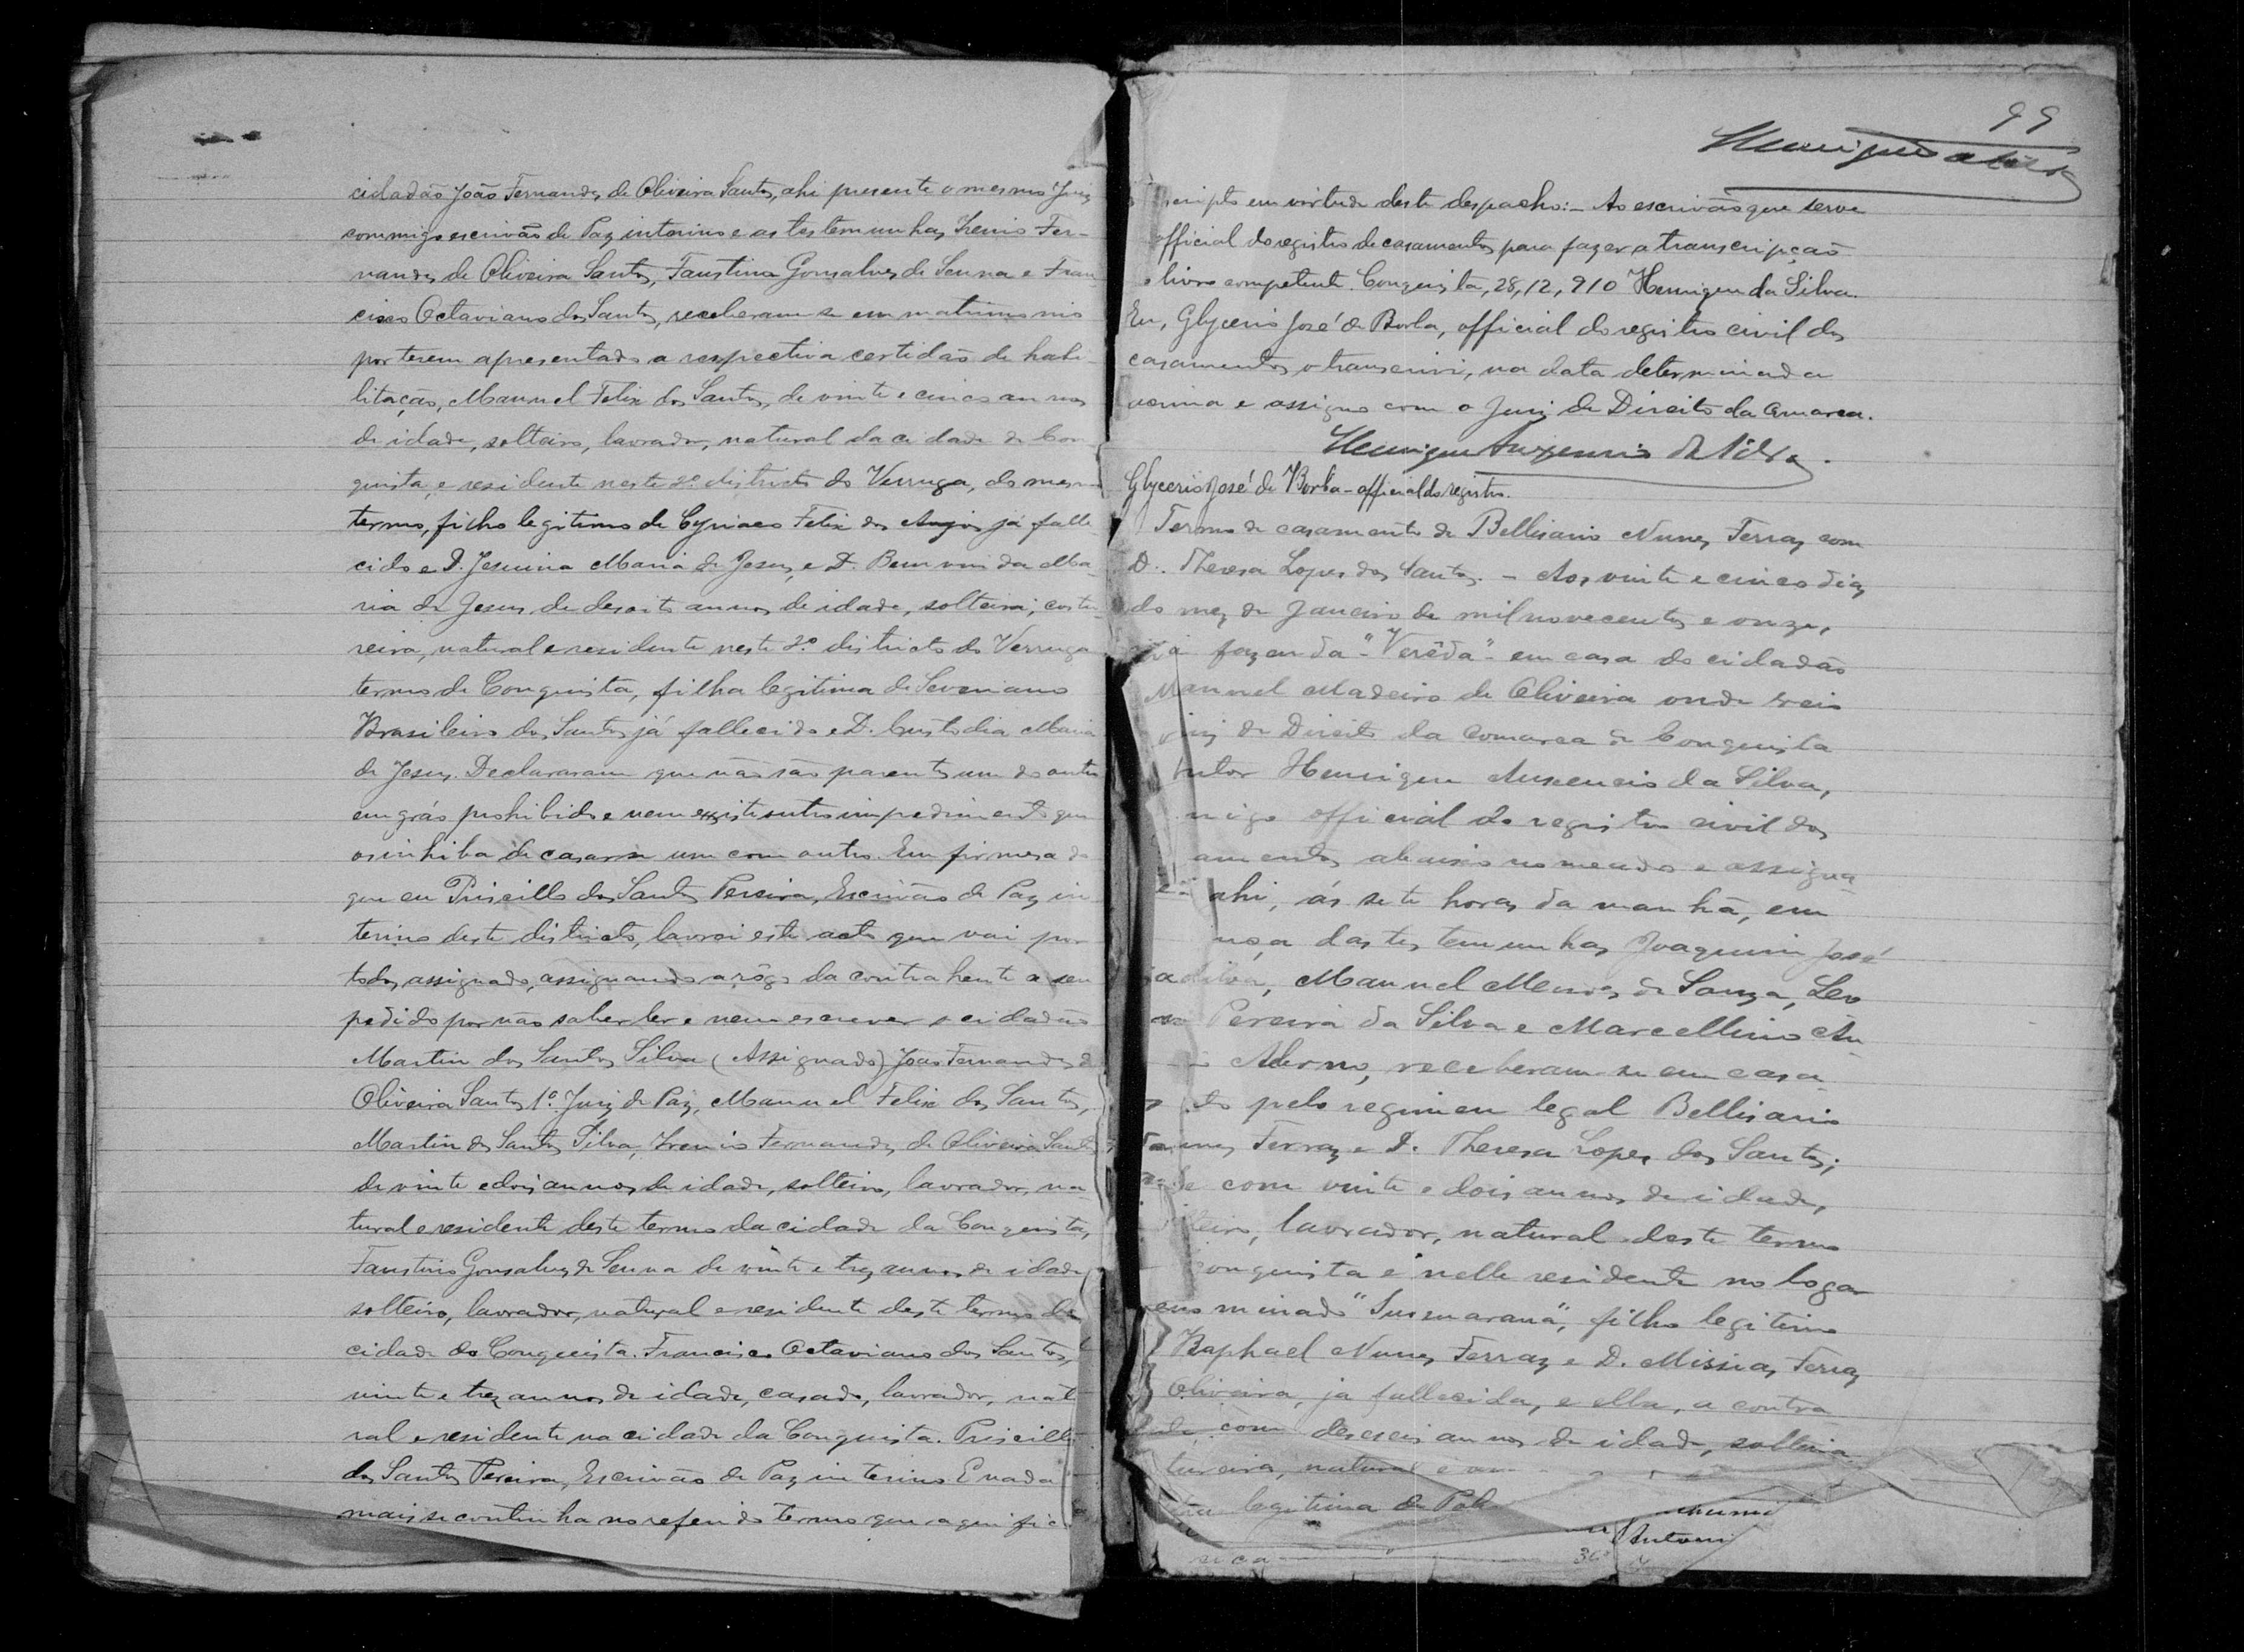 cidadão João Fernandes de Oliveira Santos, ahi presente o mesmo Juiz
commigo escrivão de Paz interino e as testemunhas Irenio Fer-
nandes de Oliveira Santos, Faustino Gonsalves de Senna e Fran
cisco Octaviano dos Santos, receberam-se em matrimonio
por terem apresentado a respectiva certidão de habi-
litação, Manuel Felix dos Santos, de vinte e cinco annos
de idade, solteiro, lavrador, natural da cidade de Con
quista, e residente neste 2º districto do Verruga, do mesmo
termo, filho legitimo de Cyriaco Felix dos Anjos já falle
cido e D. Jesuina Maria de Jesus, e D. Bemvinda Ma-
ria de Jesus de desoito annos de idade, solteira, costu
reira, natural e residente neste 2º districto do Verruga
termo de Conquista, filha legitima de Severiano
Brasileiro dos Santos já fallecido e D. Custodia Maria
de Jesus. Declararam que não são parentes um do outro
em gráo prohibido e nem existe outro impedimento que
os inhiba de casar-se um com outro. Em firmesa do
que eu Priscillo dos Santos Pereira, Escrivão de Paz in
terino deste districto, lavrei este acto que vai por
todos assignado, assignando a rôgo da contrahente a seu
pedido por não saber ler e nem escrever o cidadão
Martin dos Santos Silva (Assignado) João Fernandes de
Oliveira Santos 1º Juiz de Paz, Manuel Felix dos Santos,
Martin dos Santos Silva, Irenio Fernandes de Oliveira Santos
de vinte e dois annos de idade, solteiro, lavrador, na-
tural e residente deste termo da cidade da Conquista,
Faustino Gonsalves de Senna de vinte e trez annos de idade
solteiro, lavrador, natural e residente deste termo da
cidade da Conquista. Francisco Octaviano dos Santos,
vinte e trez annos de idade, casado, lavrador, natu
ral e residente na cidade da Conquista. Priscillo
dos Santos Pereira, Escrivão de Paz interino. E nada
mais se continha no referido termo que aqui fic
99
Henrique
scripto em virtude deste despacho:- Ao escrivão que serve
official do registro de casamentos para fazer a transcripção
o livro competente. Conquista, 28,12,910 Henrique da Silva.
Eu, Glycerio José de Borba, official do registro civil dos
casamentos o transcrivi, na data determinada
acima e assigno com o Juiz de Direito da Comarca.
Henrique Auxencio da Silva.
Glycerio José de Borba - official do registro.
Termo de casamento de Bellisario Nunes Ferraz com
D. Theresa Lopes dos Santos. - Aos vinte e cinco dias
do mez de Janeiro de mil novecentos e onze,
fazenda "Verêda" em casa do cidadão
Manuel Madeiro de Oliveira onde veio
juiz de Direito da Comarca de Conquista
Henrique Auxencio da Silva,
migo official do registro civil dos
amentos abaixo nomeado e assigna-
ahi, ás sete horas da manhã, em
das testemunhas Joaquim José
Manuel Mendes de Souza, Leo
Pereira da Silva e Marcellino An-
Aderno, receberam-se em casa
to pelo regimen legal Bellisario
Nunes Ferraz e D. Theresa Lopes dos Santos;
com vinte e dois annos de idade,
solteiro, lavrador, natural deste termo
Conquista e nelle residente no logar
denominado "Sussuarana", filho legitimo
Raphael Nunes Ferraz e D. Missias Ferraz
Oliveira, já fallecida, e ella, a contra
com deseseis annos de idade, solteira
tureira, natural e
legitima de
Antoni